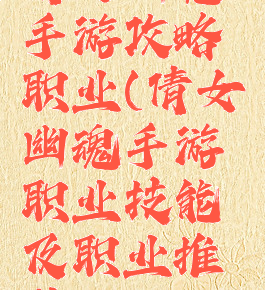 手游攻略
职业(倩女
幽魂手游
职业技能
及职业推